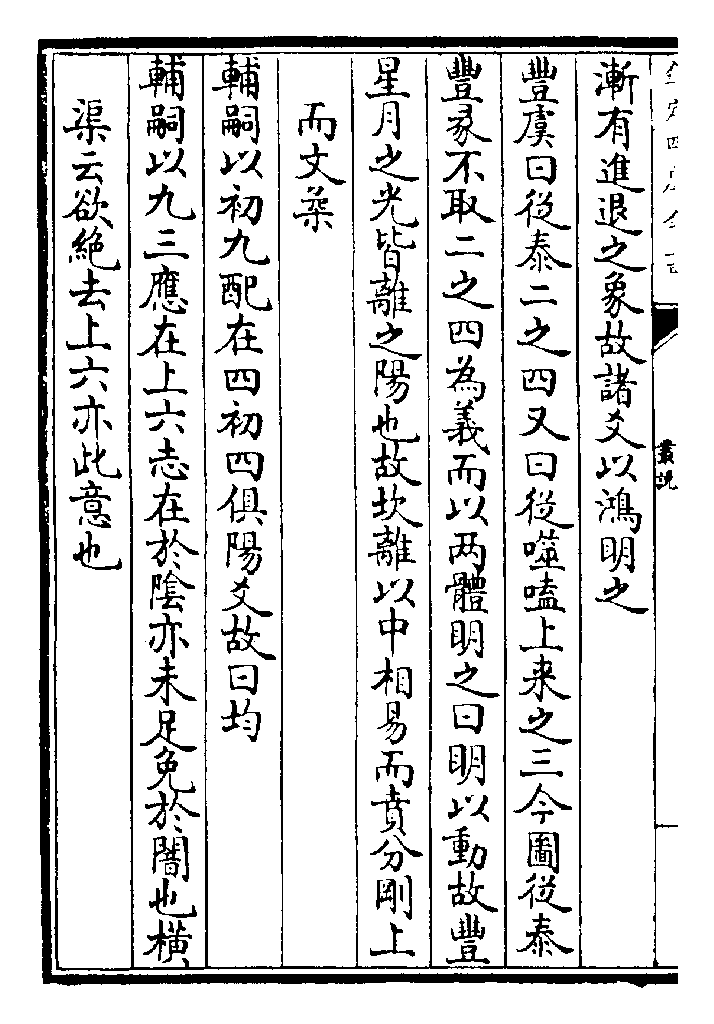 欽定四庫全書
叢說
漸有進退之象故諸爻以鴻明之
豐虞曰從泰二之四又曰從噬嗑上來之三今圖從泰
豐彖不取二之四為義而以两體明之曰明以動故豐
星月之光皆離之陽也故坎離以中相易而賁分剛上
而文柔
輔嗣以初九配在四初四俱陽爻故曰均
輔嗣以九三應在上六志在於陰亦未足免於闇也橫
渠云欲絶去上六亦此意也